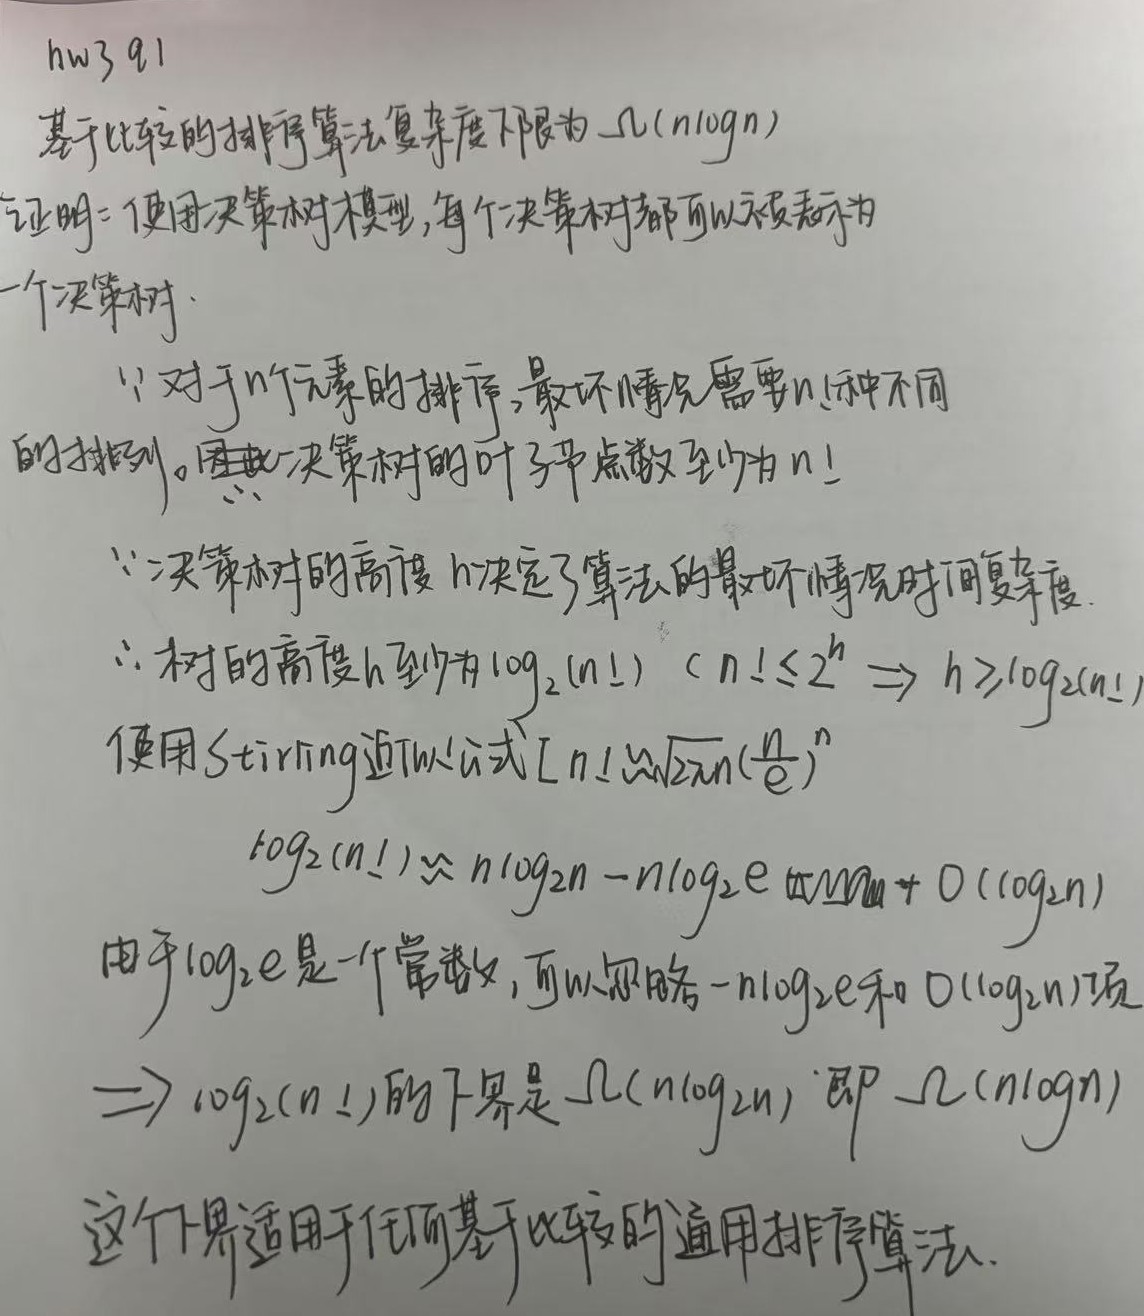 hw3 q1
基于比较的排序算法复杂度下限为 Ω(nlogn)
证明：使用决策树模型，每个决策树都可以被表示为
一个决策树.
∵ 对于n个元素的排序，最坏情况需要n!种不同
的排列。∴决策树的叶子节点数至少为n!
∵决策树的高度 h决定了算法的最坏情况时间复杂度.
∴ 树的高度h至少为log₂(n!) (n!≤2ʰ ⇒ h≥log₂(n!)
使用Stirling近似公式[n!≈√2πn(n/e)ⁿ
log₂(n!)≈nlog₂n-nlog₂e + O(log₂n)
由于log₂e是一个常数，可以忽略-nlog₂e和O(log₂n)项
⇒ log₂(n!)的下界是Ω(nlog₂n) 即 Ω(nlogn)
这个下界适用于任何基于比较的通用排序算法.